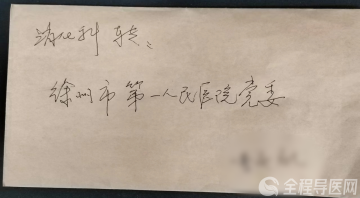 消化科 转：
徐州市第一人民医院党委
全程导医网